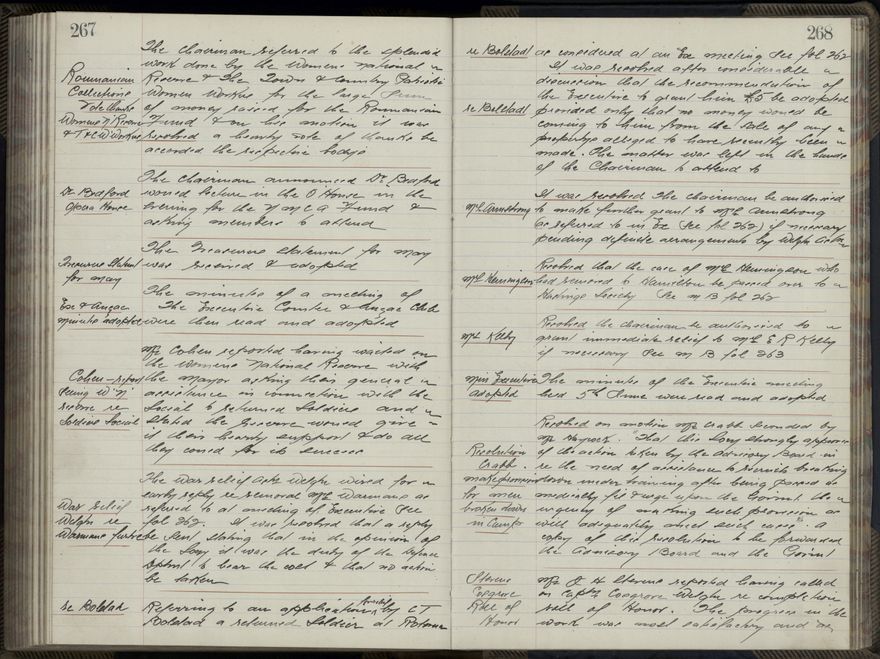 267
The Chairman referred to the splendid
work done by the Womens National
Reserve & The Town & Country Patriotic
Women Workers for the large sum
of money raised for the Roumanian
Fund & on his motion it was
resolved a hearty vote of thanks be
accorded the respective bodys
Roumanian
Collections
Vote thanks
Womens N Reserve
& T & C W Workers
The Chairman announced Dr Bedford
would lecture in the O House in the
evening for the YMCA Fund &
asking members to attend
Dr Bedford
Opera House
The Treasurers statement for May
was received & adopted
Treasurers Statmt
for May
The minutes of a meeting of
The Executive Comtee & Anzac Club
were then read and adopted
Exe & Anzac
minutes adopted
Mr Cohen reported having waited on
the Womens National Reserve with
the Mayor asking their general
assistance in connection with the
Social to returned Soldiers and
stated the Reserve would give
it their hearty support & do all
they could for its success
Cohen - report
W N
reserve re
Soldiers Social
The War relief Assn Welgtn wired for
early reply re removal Mrs Warmans as
referred to at meeting of Executive See
fol 262. It was resolved that a reply
be sent stating that in the opinion of
the Socy it was the duty of the Defence
Dptmt to bear the cost & that no action
be taken
War relief
Welgtn re
Warmans furniture
re Bolstad
Referring to an application by C T
Bolstad a returned Soldier at Rotorua
268
re Bolstad
as considered at an Exe meeting See fol 262
It was resolved after considerable
discussion that the recommendation of
the Executive to grant him £5 be adopted
re Bolstad
provided only that no money would be
coming to him from the sale of any
property alleged to have recently been
made. The matter was left in the hands
of the Chairman to attend to
It was resolved the Chairman be authorised
Mrs Armstrong
to make further grant to Mrs Armstrong
(as referred to in Ex See fol 262) if necessary
pending definite arrangements by Welgtn
Resolved that the case of Mrs Hennington who
Mrs Hennington
had removed to Hamilton be passed over to
Hastings Society See M B fol 262
Resolved the Chairman be authorised to
Mrs Kelly
grant immediate relief to Mrs E R Kelly
if necessary See M B fol 263
Min Executive
adopted
The minutes of the Executive meeting
held 5th June were read and adopted
Resolved on motion Mr Crabb seconded by
Mr Haycock. "That this Socy strongly approves
of the action taken by the Advisory Board in
re the need of assistance to recruits breaking
down under training after being passed as
medically fit & urge upon the Govmt the
urgency of making such provision as
will adequately meet such cases" a
copy of this resolution to be forwarded
the Advisory Board and the Govmt
Resolution
Crabb
make provision
for men
broken down
in Camp
Stevens
Cosgrove
Roll of
Honor
Mr J H Stevens reported having called
on Capt Cosgrove Welgtn re completion
roll of Honor. The progress in the
work was most satisfactory and